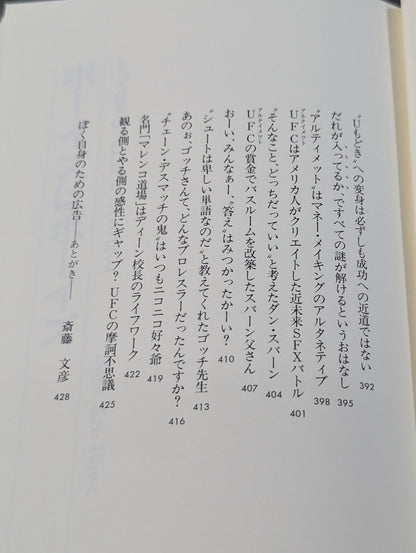 “Uもどき”への変身は必ずしも成功への近道ではない 392
だれが入ってるか、ですべての謎が解けるというおはなし 395
“アルティメット”はマネー・メイキングのアルタネティブ 398
UFCはアメリカ人がクリエイトした近未来SFXバトル 401
“そんなこと、どっちだっていい”と考えたダン・スバーン 404
UFCの賞金でバスルームを改築したスバーン父さん 407
おーい、みんなぁー、“答え”はみつかったかーい？ 410
“シュートは卑しい単語なのだ”と教えてくれたゴッチ先生 413
あのぉ、ゴッチさんて、どんなプロレスラーだったんですか？ 416
“チェーン・デスマッチの鬼”はいつもニコニコ好々爺 419
名門「マレンコ道場」はディーン校長のライフワーク 422
観る側とやる側の感性にギャップ？UFCの摩訶不思議 425
ぼく自身のための広告——あとがき—— 斎藤 文彦 428